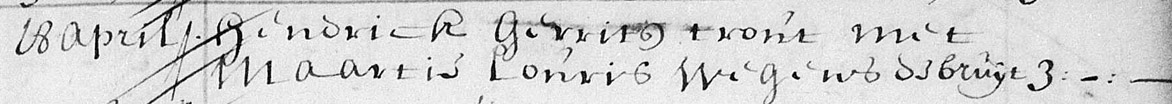 18 april Hendrick Gerrits trout met
Maartie Louris wegens de bruyt 3:-:-